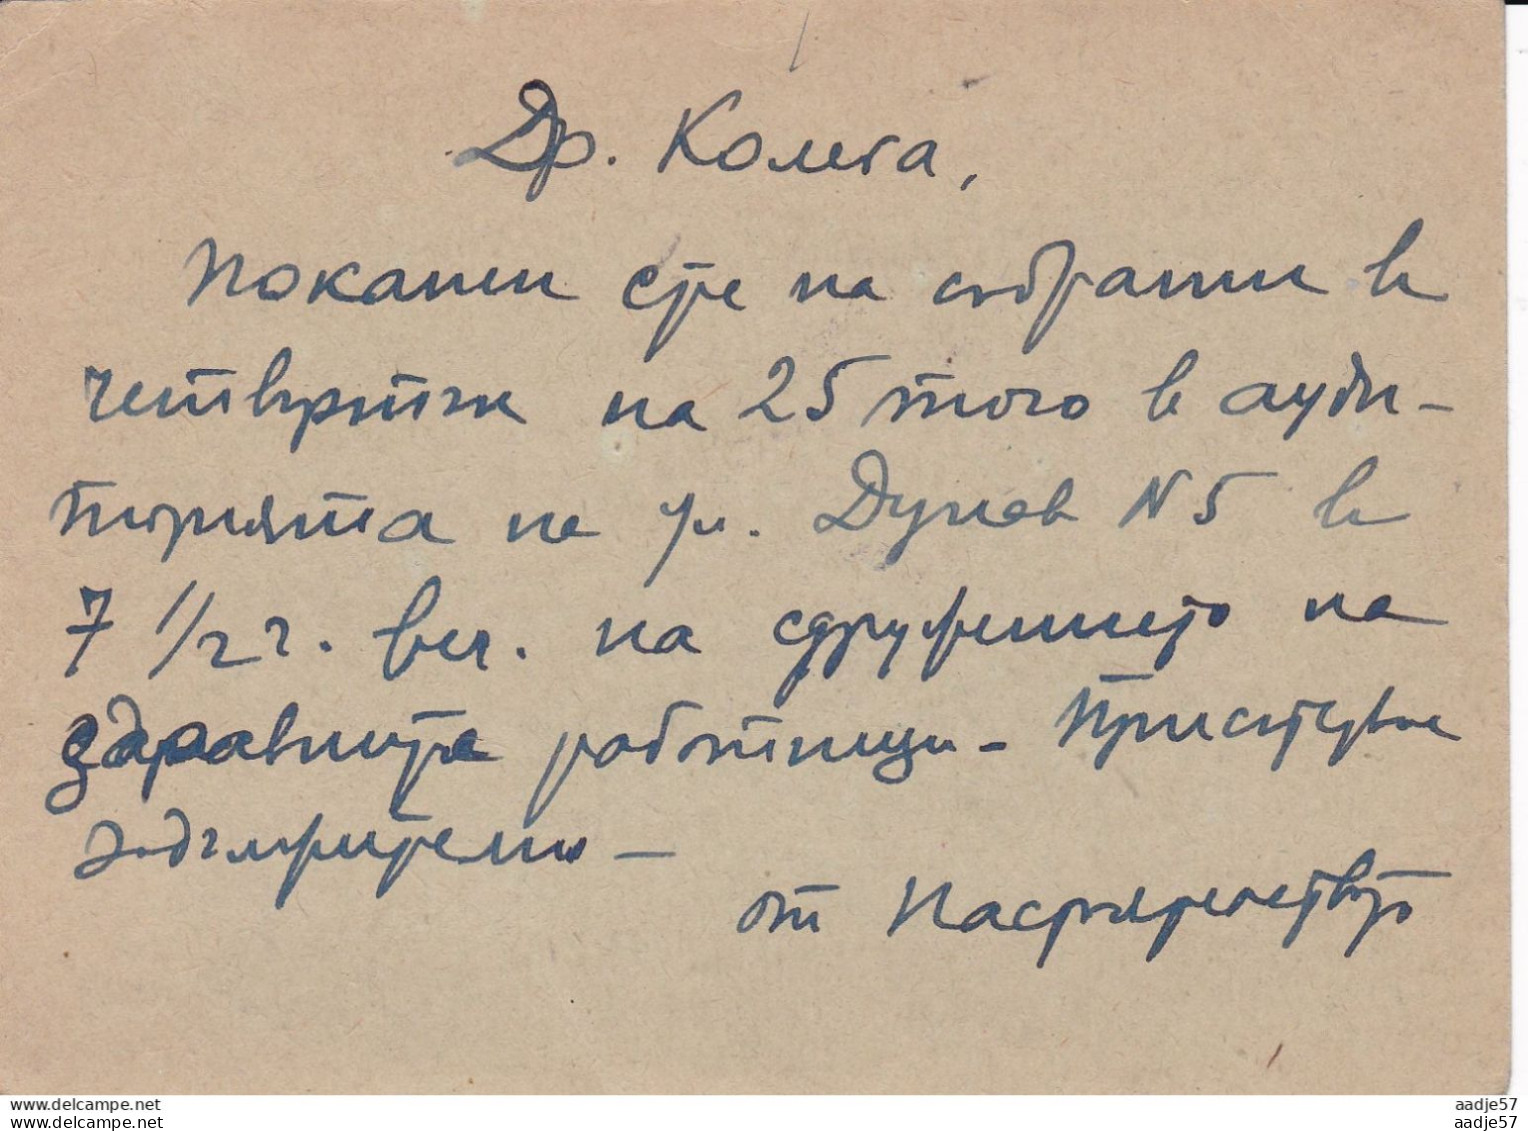 Др. Колега,
Поканен сте на събрание в
четвъртък на 25 того в ауди-
торията на ул. Дунав N 5 в
7 1/2 ч. веч. на сдружението на
здравните работници - Присъствие
задължително -
от
delcampe.net
delcampe.net
aadje57
aadje57